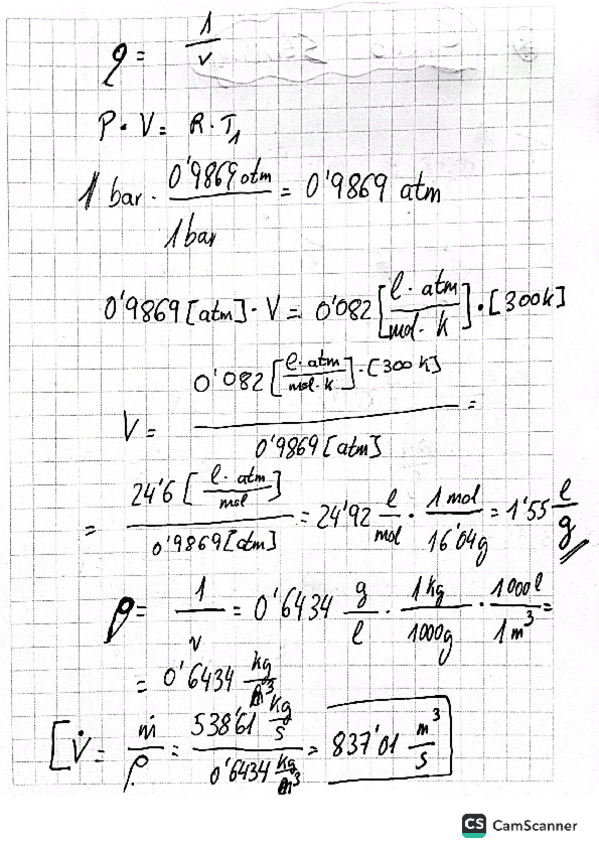 ρ = 1/v
P · V = R · T₁
1 bar · 0'9869 atm / 1 bar = 0'9869 atm
0'9869 [atm] · V = 0'082 [l · atm / mol · k] · [300 k]
V = 0'082 [l · atm / mol · k] · [300 k] / 0'9869 [atm] =
= 24'6 [l · atm / mol] / 0'9869 [atm] = 24'92 l/mol · 1 mol / 16'04 g = 1'55 l/g
ρ = 1/v = 0'6434 g/l · 1 kg / 1000 g · 1000 l / 1 m³ =
= 0'6434 kg/m³
[V̇ = ṁ/ρ = 538'61 kg/s / 0'6434 kg/m³ = 837'01 m³/s
CS CamScanner